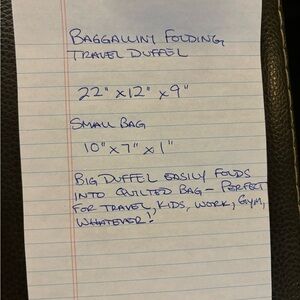 BAGGALLINI FOLDING
TRAVEL DUFFEL
22" x 12" x 9"
SMALL BAG
10" x 7" x 1"
BIG DUFFEL EASILY FOLDS
INTO QUILTED BAG - PERFECT
FOR TRAVEL, KIDS, WORK, GYM,
WHATEVER!